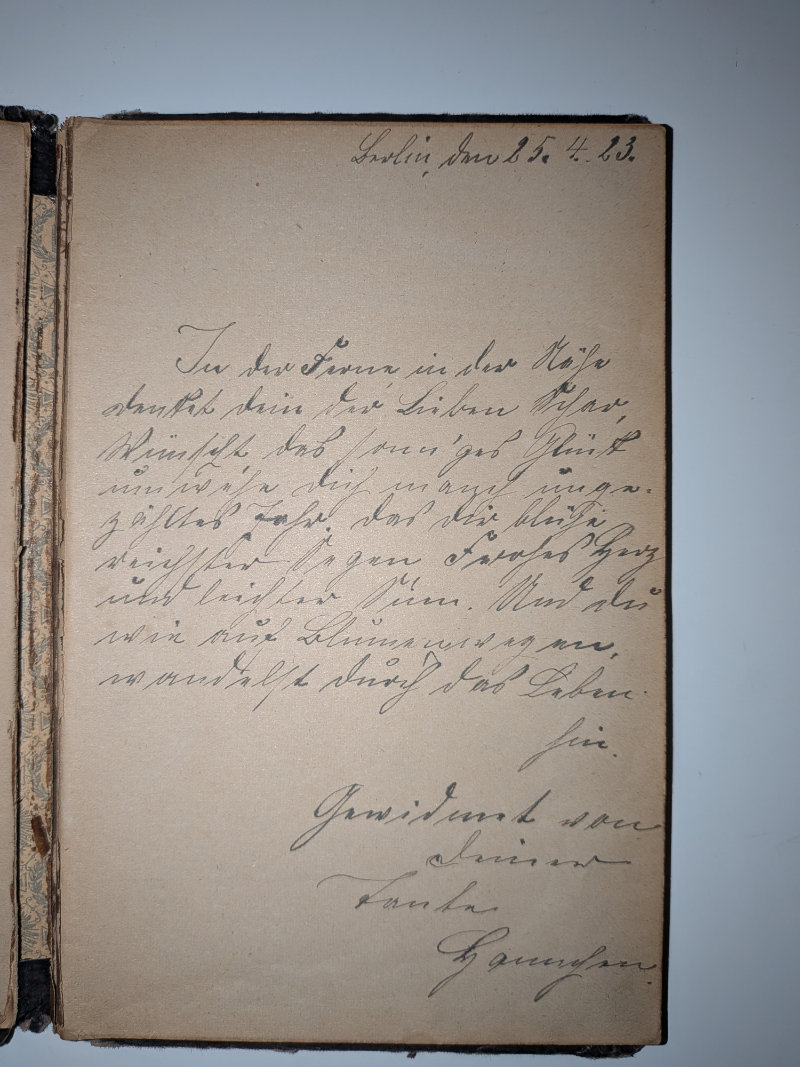 Berlin, den 25. 4. 23.
In der Ferne, in der Nähe
denket dein der Lieben Schar,
Wünscht das sonn'ges Glück
umwehe dich manch unge-
zähltes Jahr, das dir blühe
reichster Segen Frohes Herz
und leichter Sinn. Und du
wie auf Blumenwegen,
wandelst durch das Leben
hin.
Gewidmet von
Deiner
Tante
Hannchen.